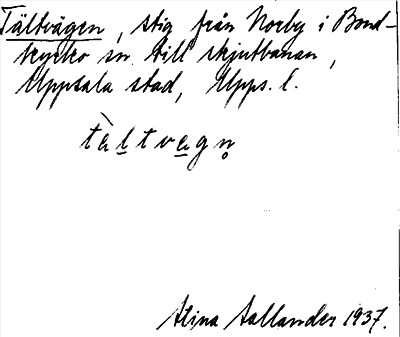 Tältvägen, stig från Norby i Bond-
kyrko sn till skjutbanan,
Uppsala stad, Upps. l.
tàltvagn̥
Stina Sallander 1937.